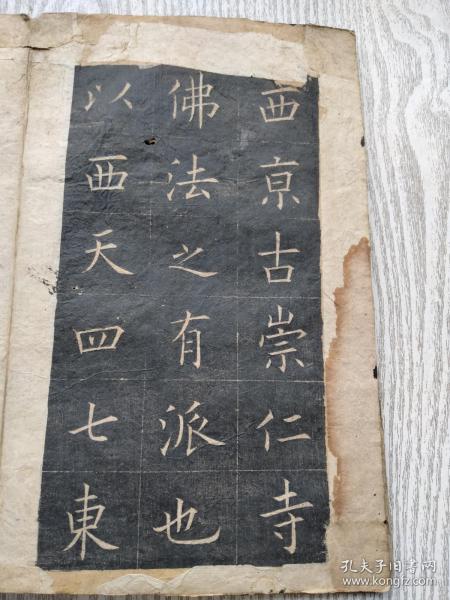 西亰古崇仁寺
佛法之有派也
以西天四七東
孔夫子旧书网
www.kongfz.com